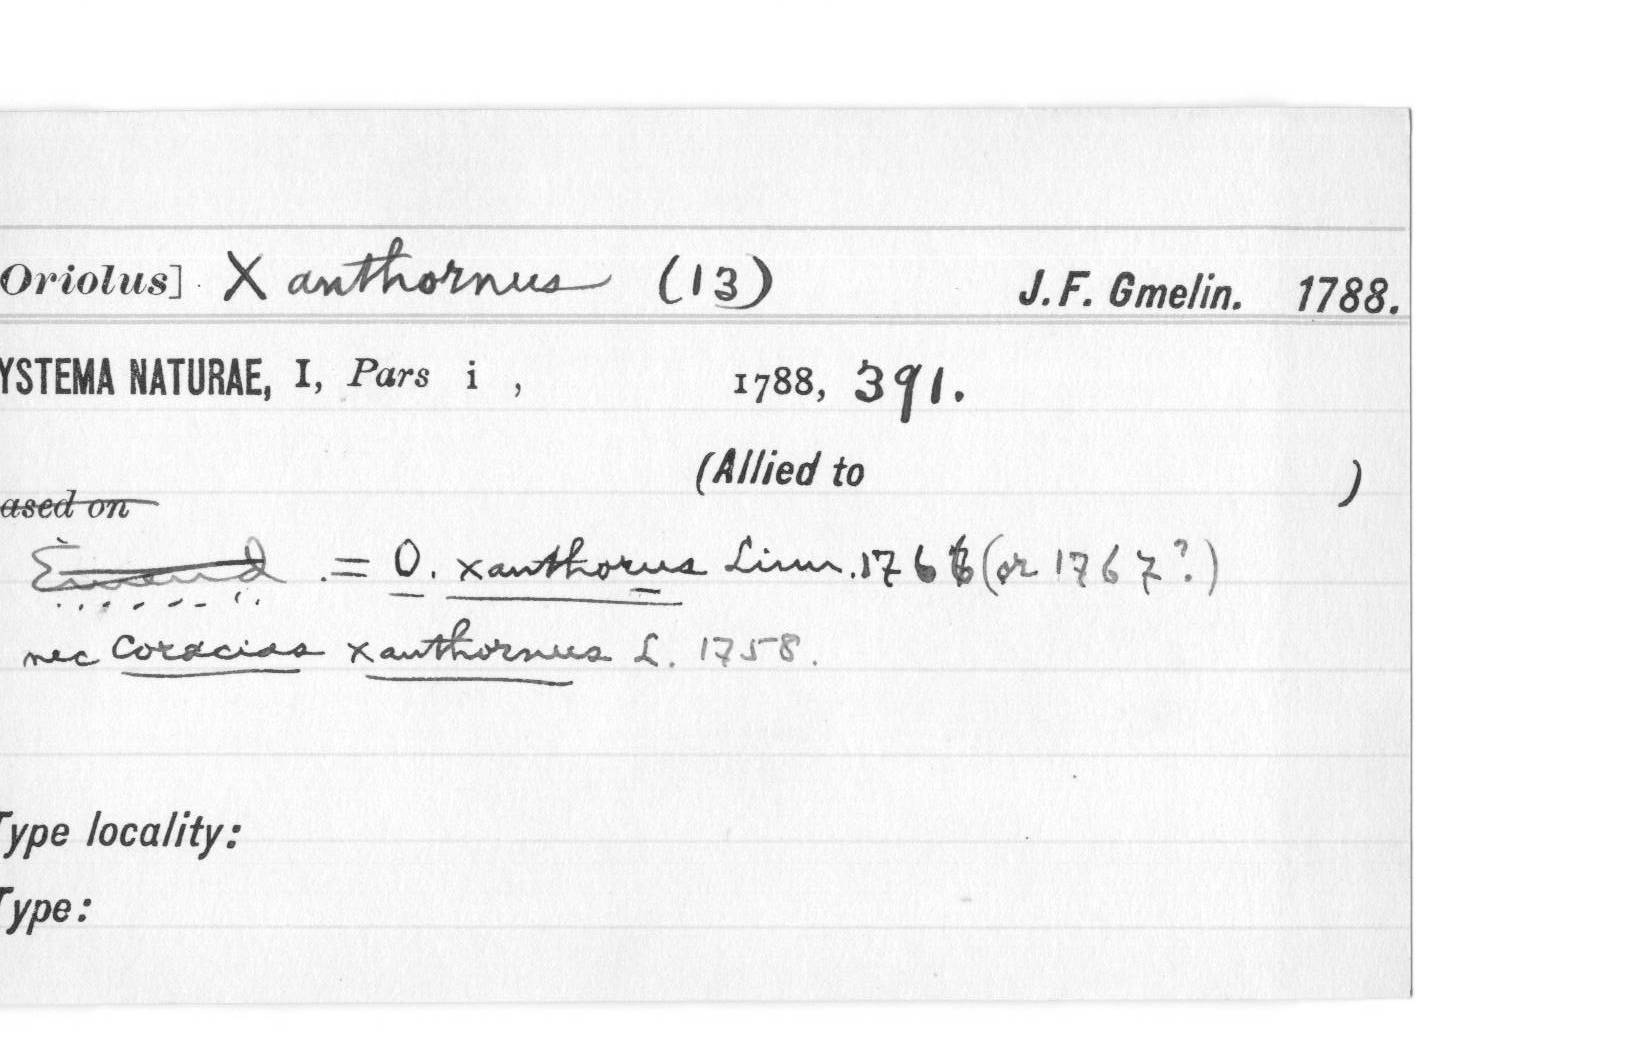 Oriolus] Xanthornus (13) J. F. Gmelin. 1788.
YSTEMA NATURAE, I, Pars i , 1788, 391.
(Allied to )
ased on
Emend .= O. xanthorus Linn. 1766 (or 1767?)
nec Coracias xanthornus L. 1758.
Type locality:
Type: